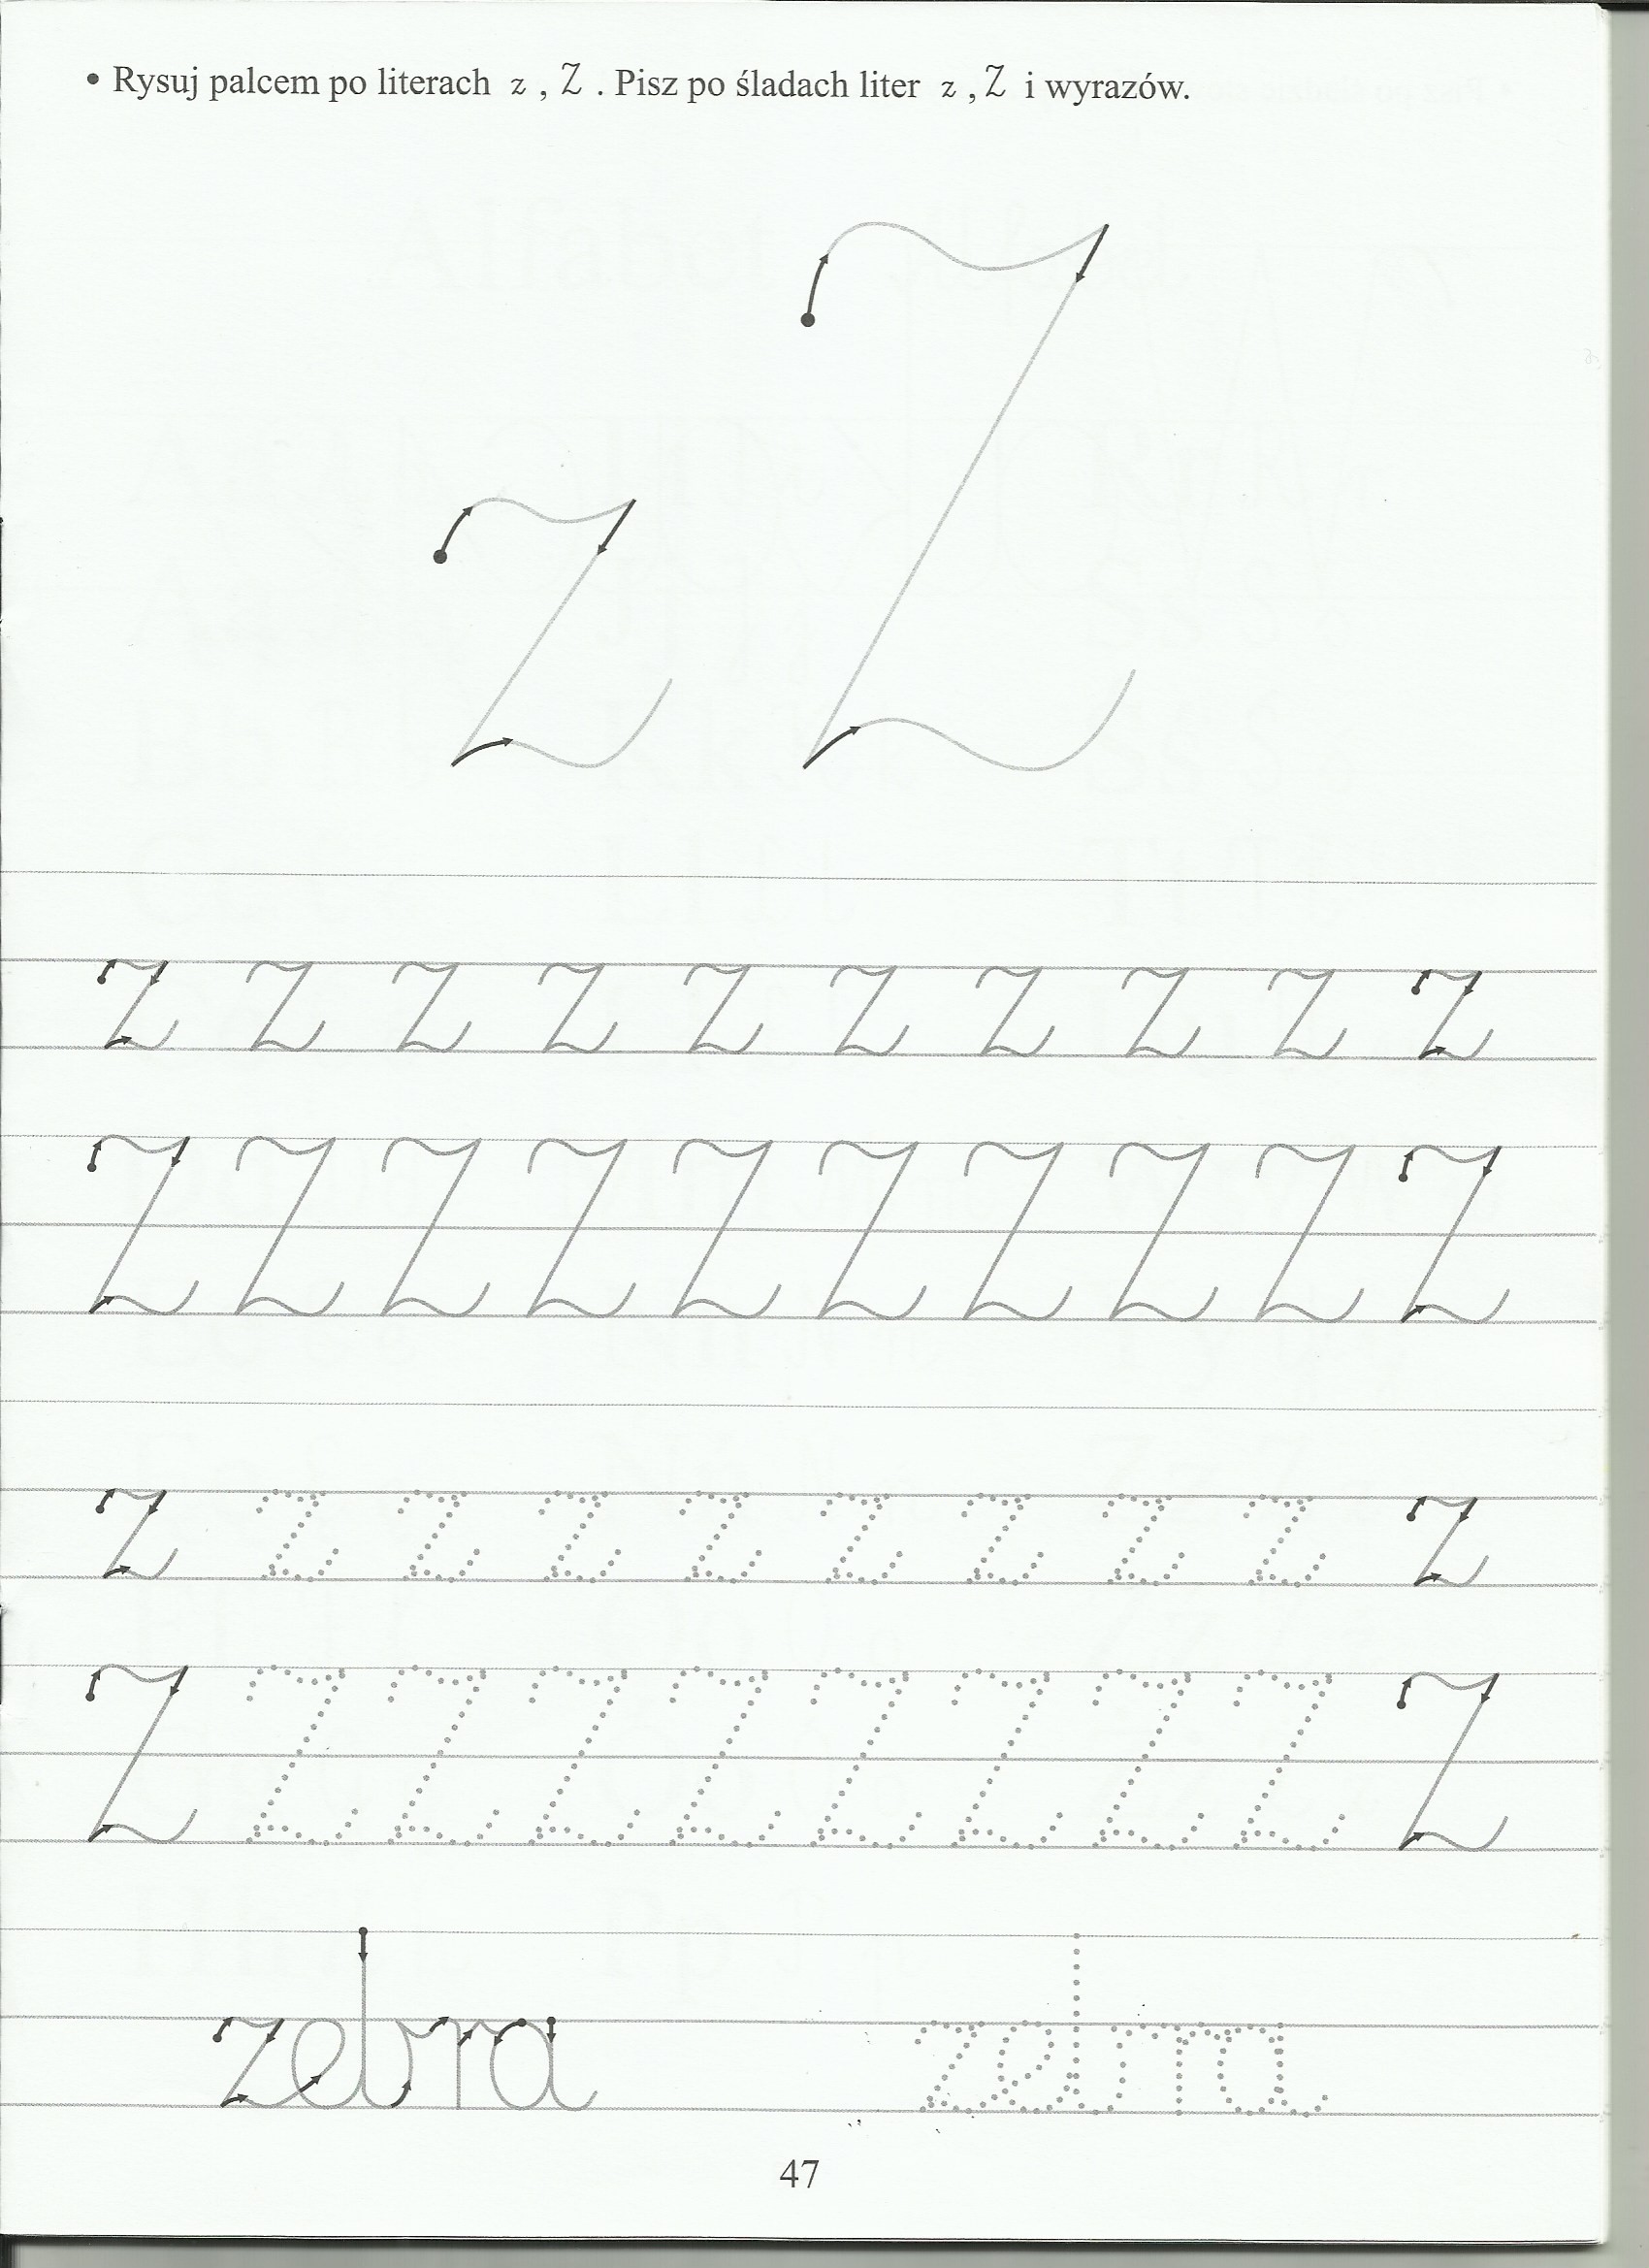 • Rysuj palcem po literach z , Z . Pisz po śladach liter z , Z i wyrazów.
z Z
z z z z z z z z z z
Z Z Z Z Z Z Z Z Z Z
z z z z z z z z z z
Z Z Z Z Z Z Z Z Z Z
zebra zebra
47